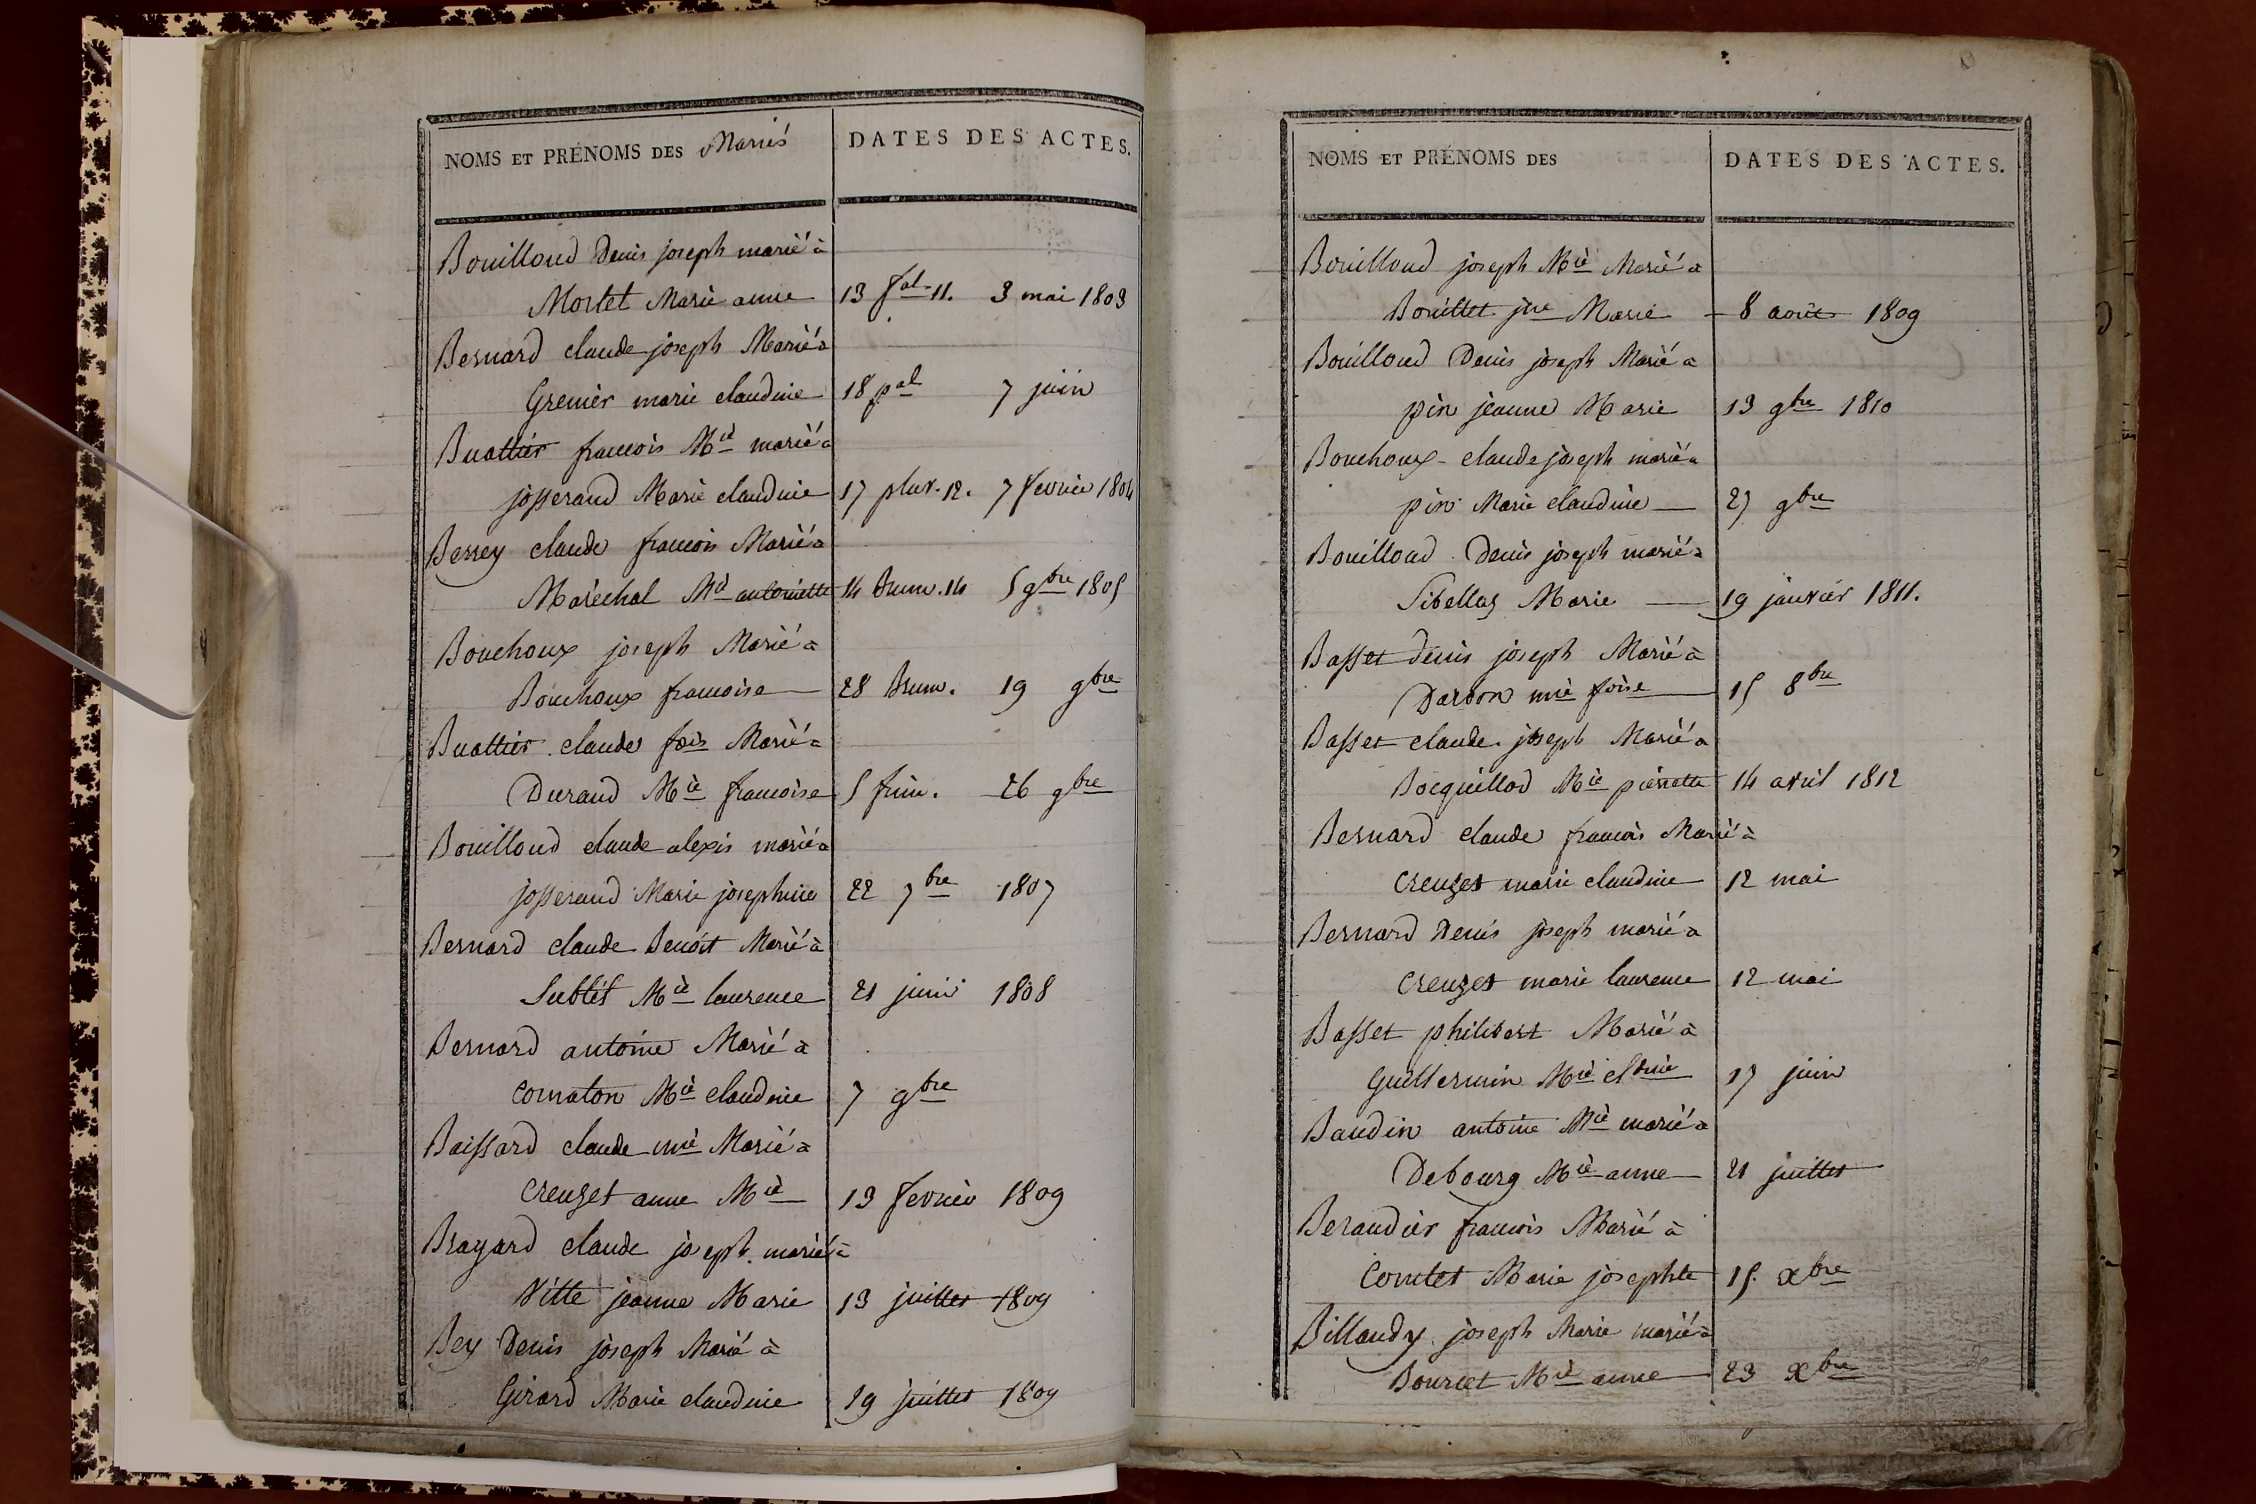 NOMS ET PRÉNOMS DES Mariés
DATES DES ACTES.
Bouilloud Denis joseph marié à
Mortet Marie anne 13 fal. 11. 3 mai 1803
Bernard claude joseph Marié à
Grenier marie claudine 18 pal 7 juin
Buattier francois Mie marié à
josserand Marie claudine 17 pluv. 12. 7 fevrier 1804
Berrey claude francois Marié à
Maréchal Mie antoinette 14 brum. 14 5 9bre 1805
Bouchoux joseph Marié à
Bouchoux francoise 28 brum. 19 9bre
Buattier claude fois Marié à
Durand Mie francoise 5 frim. 26 9bre
Bouilloud claude alexis marié à
josserand Marie josephine 22 7bre 1807
Bernard claude Benoit Marié à
Sublet Mie laurence 21 juin 1808
Bernard antoine Marié à
Comaton Mie claudine 7 9bre
Baissard claude mie Marié à
Creuzet anne Mie 13 fevrier 1809
Brayard claude joseph marié à
Vitte jeanne Marie 13 juillet 1809
Bey Denis joseph Marié à
Girard Marie claudine 19 juillet 1809
NOMS ET PRÉNOMS DES
DATES DES ACTES.
Bouilloud joseph Mie Marié à
Bouillet jne Marie 8 août 1809
Bouilloud Denis joseph Marié à
pin jeanne Marie 13 9bre 1810
Bouchoux claude joseph marié à
pin Marie claudine 27 9bre
Bouilloud Denis joseph marié à
Sibellas Marie 19 janvier 1811.
Basset denis joseph Marié à
Darbon mie foise 15 8bre
Basset claude joseph Marié à
Bocquillod Mie pierrette 14 avril 1812
Bernard claude francois Marié à
Creuzet marie claudine 12 mai
Bernard Denis joseph marié à
Creuzet marie laurence 12 mai
Basset philibert Marié à
Guillermin Mie cldine 17 juin
Baudin antoine Mie marié à
Debourg Mie anne 21 juillet
Beraudier francois Marié à
Comtet Marie josephte 15. Xbre
Billaudy joseph Marie marié à
Bourcet Mie anne 23 Xbre